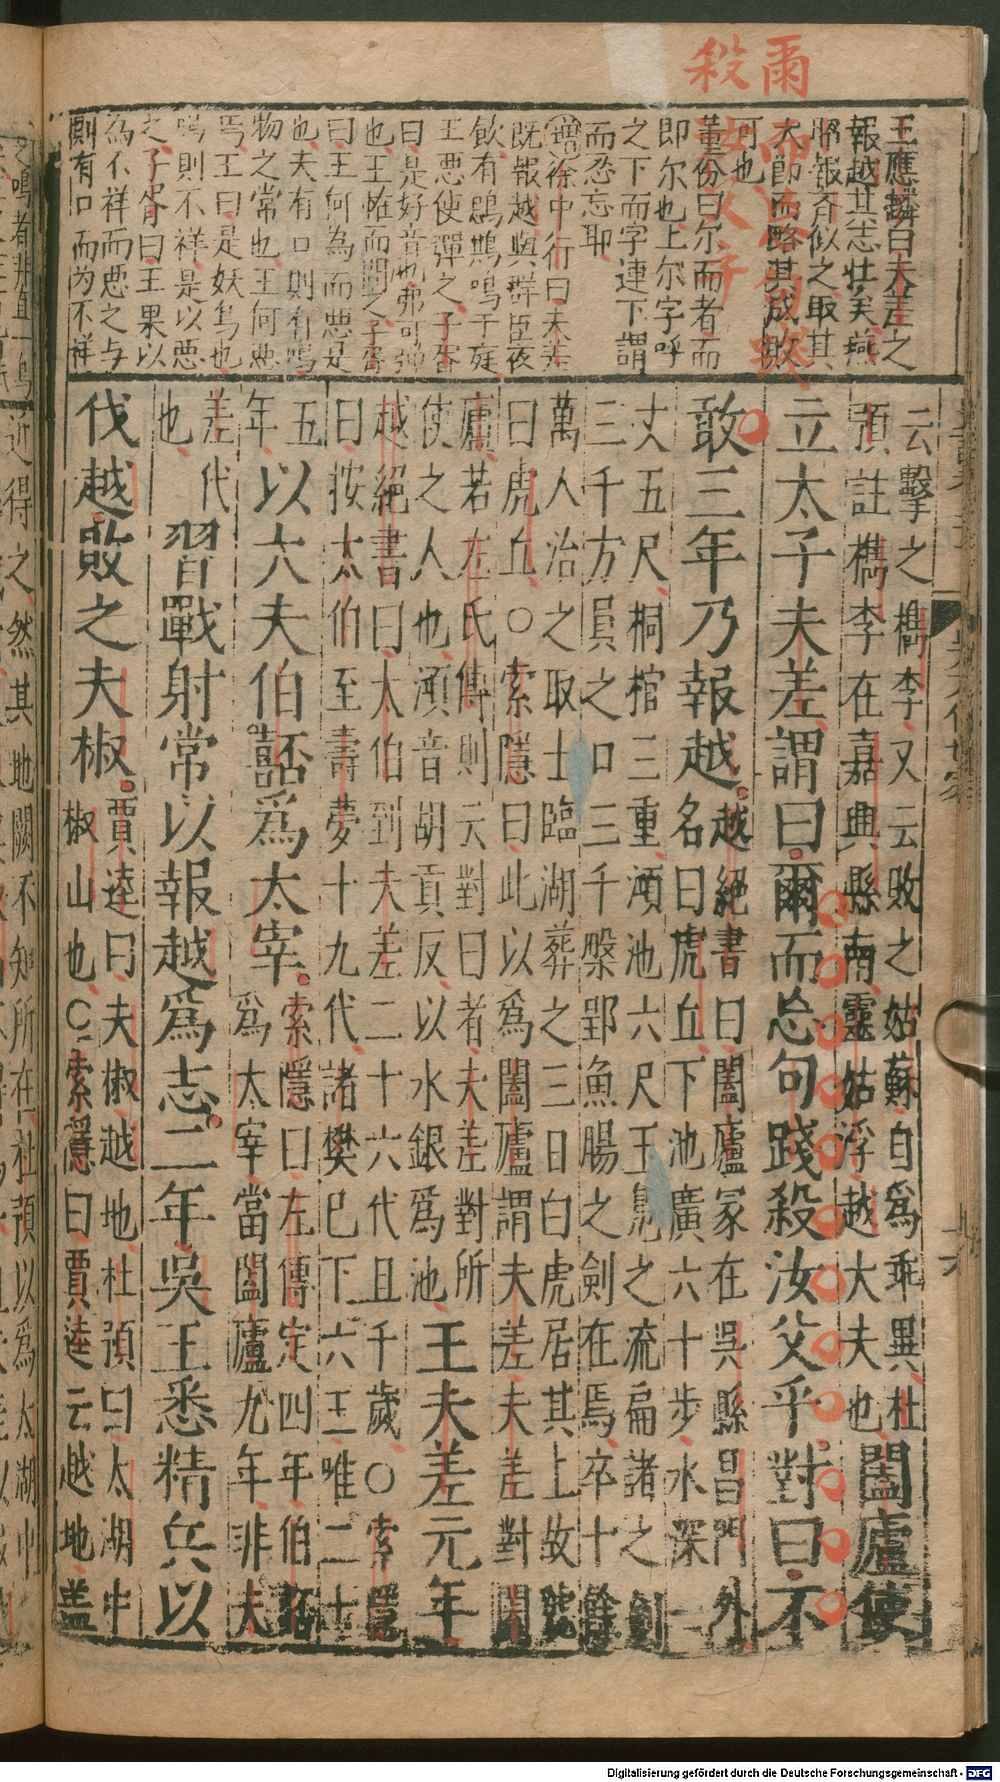 爾而忘句踐
殺汝父乎
王應麟曰夫差之
報越其志壯矣燕
昭報齊似之取其
大節而略其成敗
可也
董份曰尔而者而
即尔也上尔字呼
之下而字連下謂
而忍忘耶
增徐中行曰夫差
既報越與群臣夜
飲有鵂鶹鳴于庭
王惡使彈之子胥
曰是好音也弗可彈
也王怪而問之子胥
曰王何為而惡是
也夫有口則有鳴
物之常也王何惡
焉王曰是妖鳥也
鳴則不祥是以惡
之子胥曰王果以
為不祥而惡之与
則有口而為不祥
云擊之檇李又云敗之姑蘇自爲乖異杜
預註檇李在嘉興縣南靈姑浮越大夫也闔廬使
立太子夫差謂曰爾而忘句踐殺汝父乎對曰不
敢三年乃報越越絕書曰闔廬冢在吳縣昌門外
名曰虎丘下池廣六十步水深一
丈五尺桐棺三重澒池六尺玉鳧之流扁諸之劍
三千方員之口三千槃郢魚腸之劍在焉卒十餘
萬人治之取土臨湖葬之三日白虎居其上故號
曰虎丘○索隱曰此以爲闔廬謂夫差夫差對闔
廬若左氏傳則云對曰者夫差對所
使之人也澒音胡貢反以水銀爲池王夫差元年
越絕書曰太伯到夫差二十六代且千歲○索隱
曰按太伯至壽夢十九代諸樊已下六王唯二十
五年以大夫伯嚭爲太宰索隱曰左傳定四年伯嚭
爲太宰當闔廬九年非夫
差代也習戰射常以報越爲志二年吳王悉精兵以
伐越敗之夫椒賈逵曰夫椒越地杜預曰太湖中
椒山也○索隱曰賈逵云越地蓋
近得之然其地闕不知所在杜預以爲太湖中
Digitalisierung gefördert durch die Deutsche Forschungsgemeinschaft - DFG